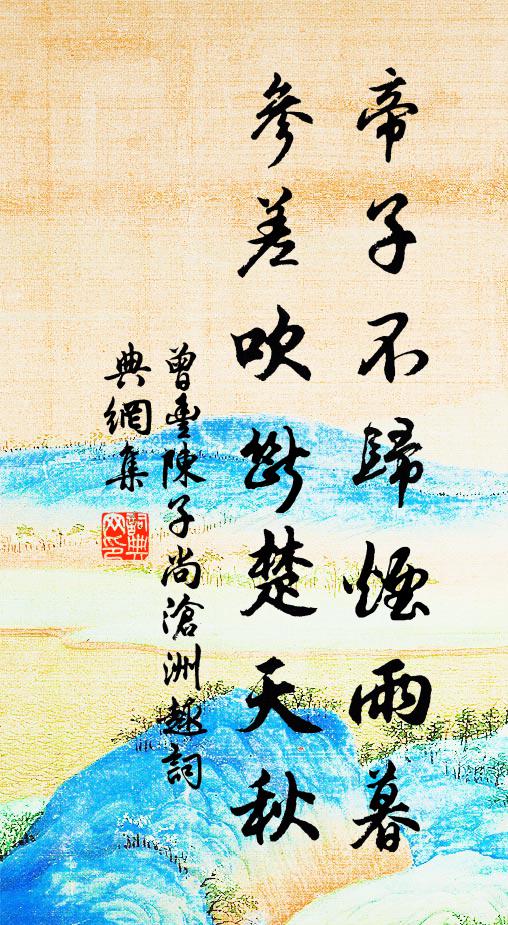 帝子不歸煙雨暮
參差吹斷楚天秋
曾豐陳子尚滄洲趣詞
典網集
詞典
网印